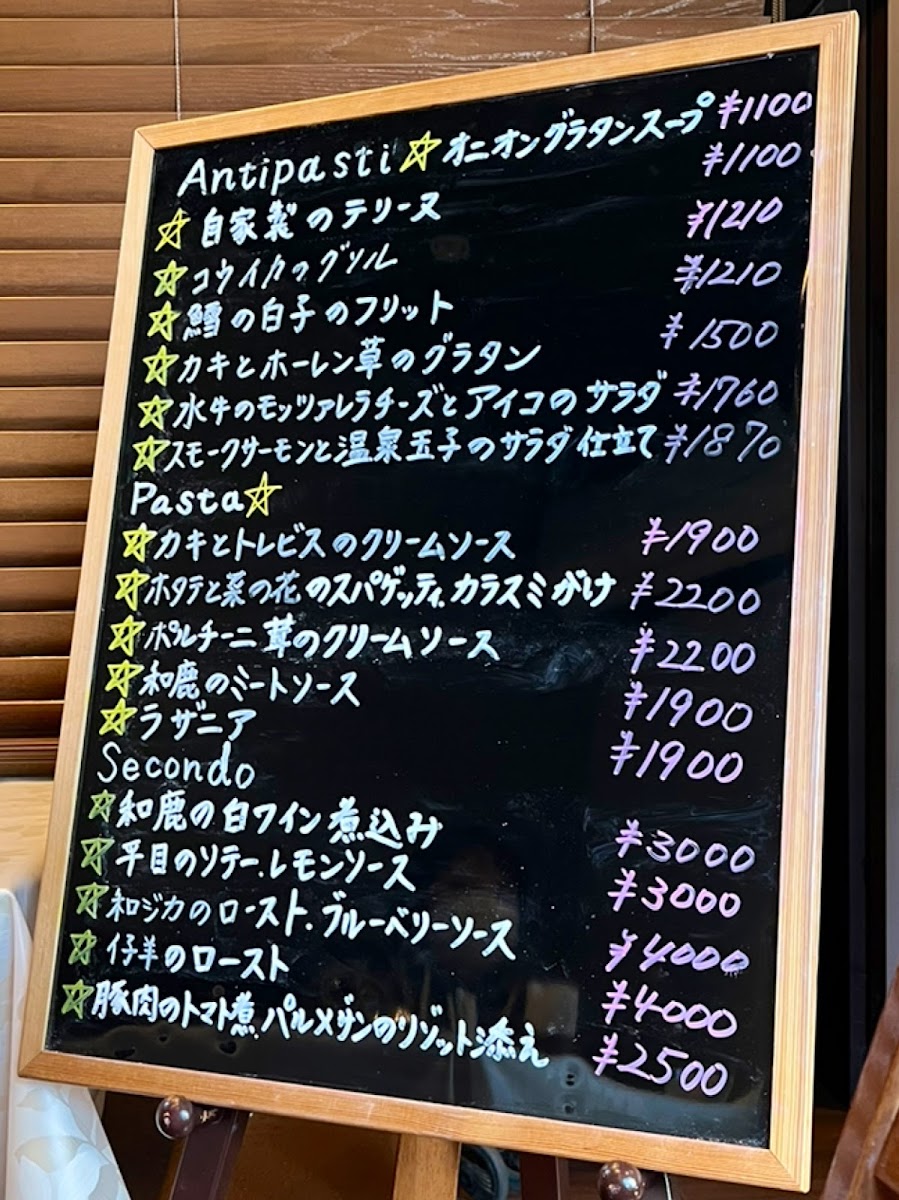 Antipasti☆オニオングラタンスープ ¥1100
☆自家製のテリーヌ ¥1100
☆コウイカのグリル ¥1210
☆鱈の白子のフリット ¥1210
☆カキとホーレン草のグラタン ¥1500
☆水牛のモッツァレラチーズとアイコのサラダ ¥1760
☆スモークサーモンと温泉玉子のサラダ仕立て ¥1870
Pasta☆
☆カキとトレビスのクリームソース ¥1900
☆ホタテと菜の花のスパゲッティ.カラスミがけ ¥2200
☆ポルチーニ茸のクリームソース ¥2200
☆和鹿のミートソース ¥1900
☆ラザニア ¥1900
Secondo
☆和鹿の白ワイン煮込み ¥3000
☆平目のソテー.レモンソース ¥3000
☆和ジカのロースト.ブルーベリーソース ¥4000
☆仔羊のロースト ¥4000
☆豚肉のトマト煮.パルメザンのリゾット添え ¥2500